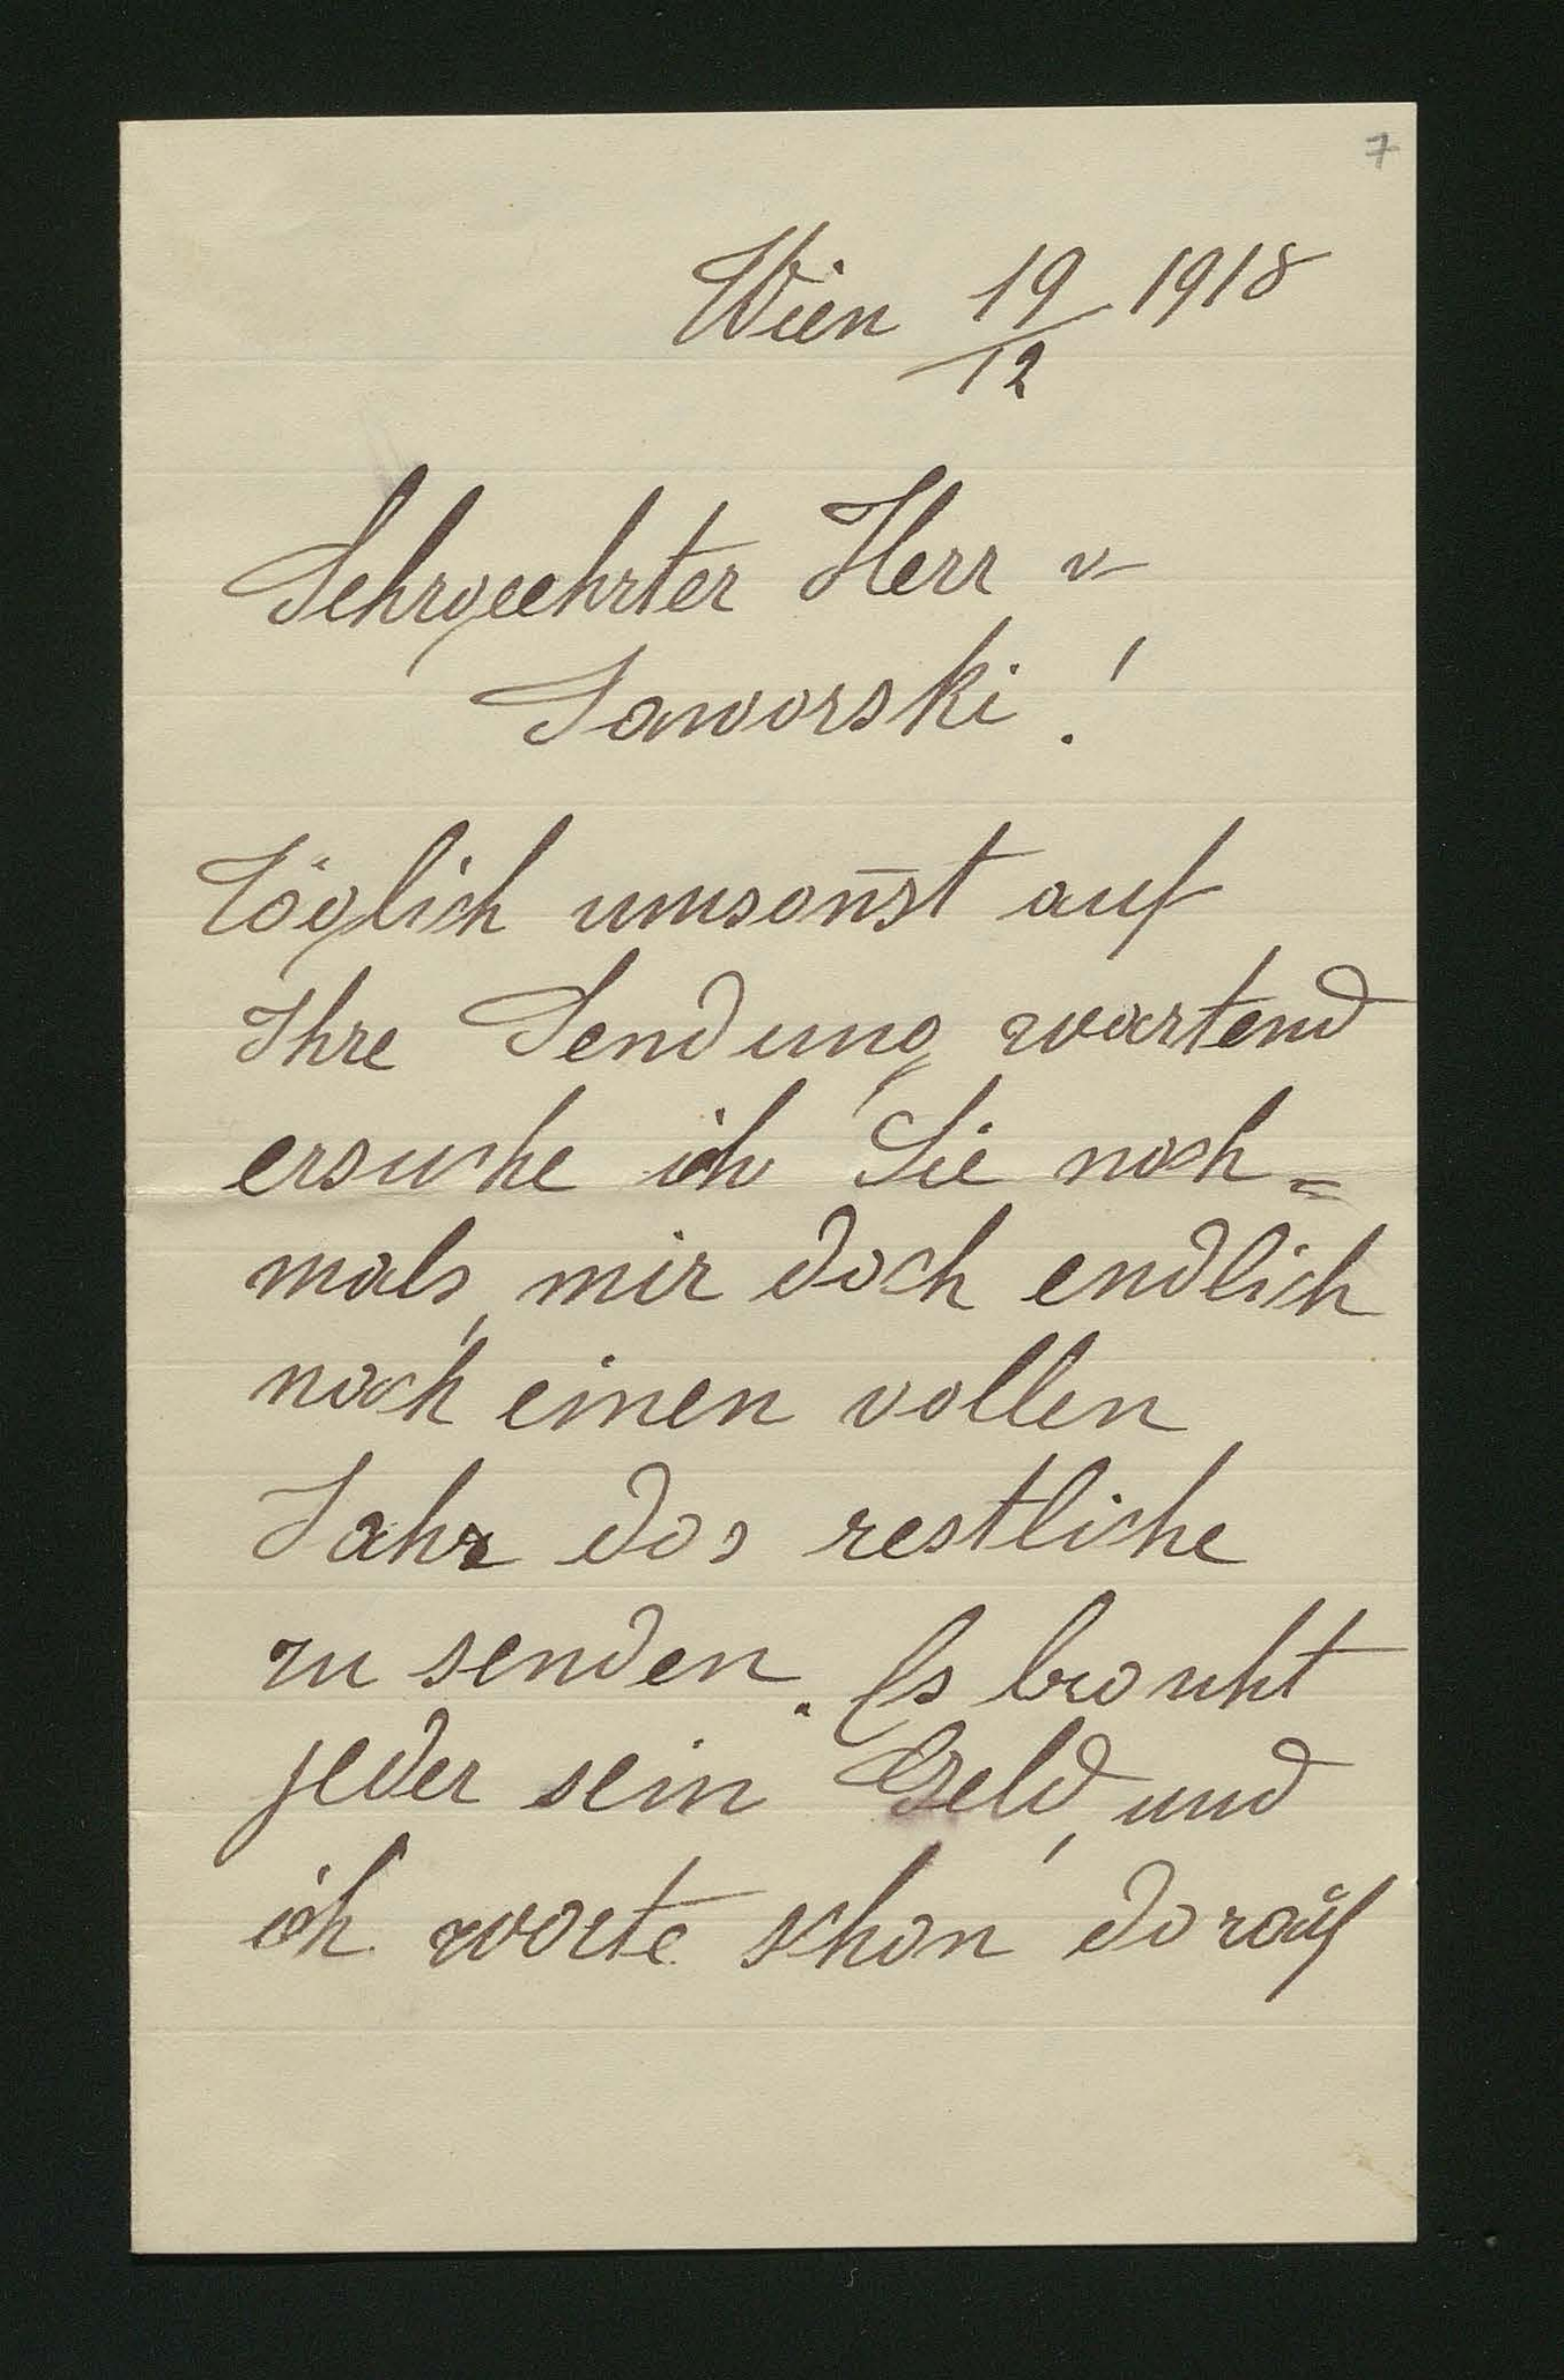 7
Wien 19/12 1918
Sehrgeehrter Herr v
Jaworski!
Täglich umsonst auf
Ihre Sendung wartend
ersuche ich Sie noch=
mals, mir doch endlich
nach einen vollen
Jahr das restliche
zu senden. Es braucht
jeder sein Geld, und
ich warte schon darauf